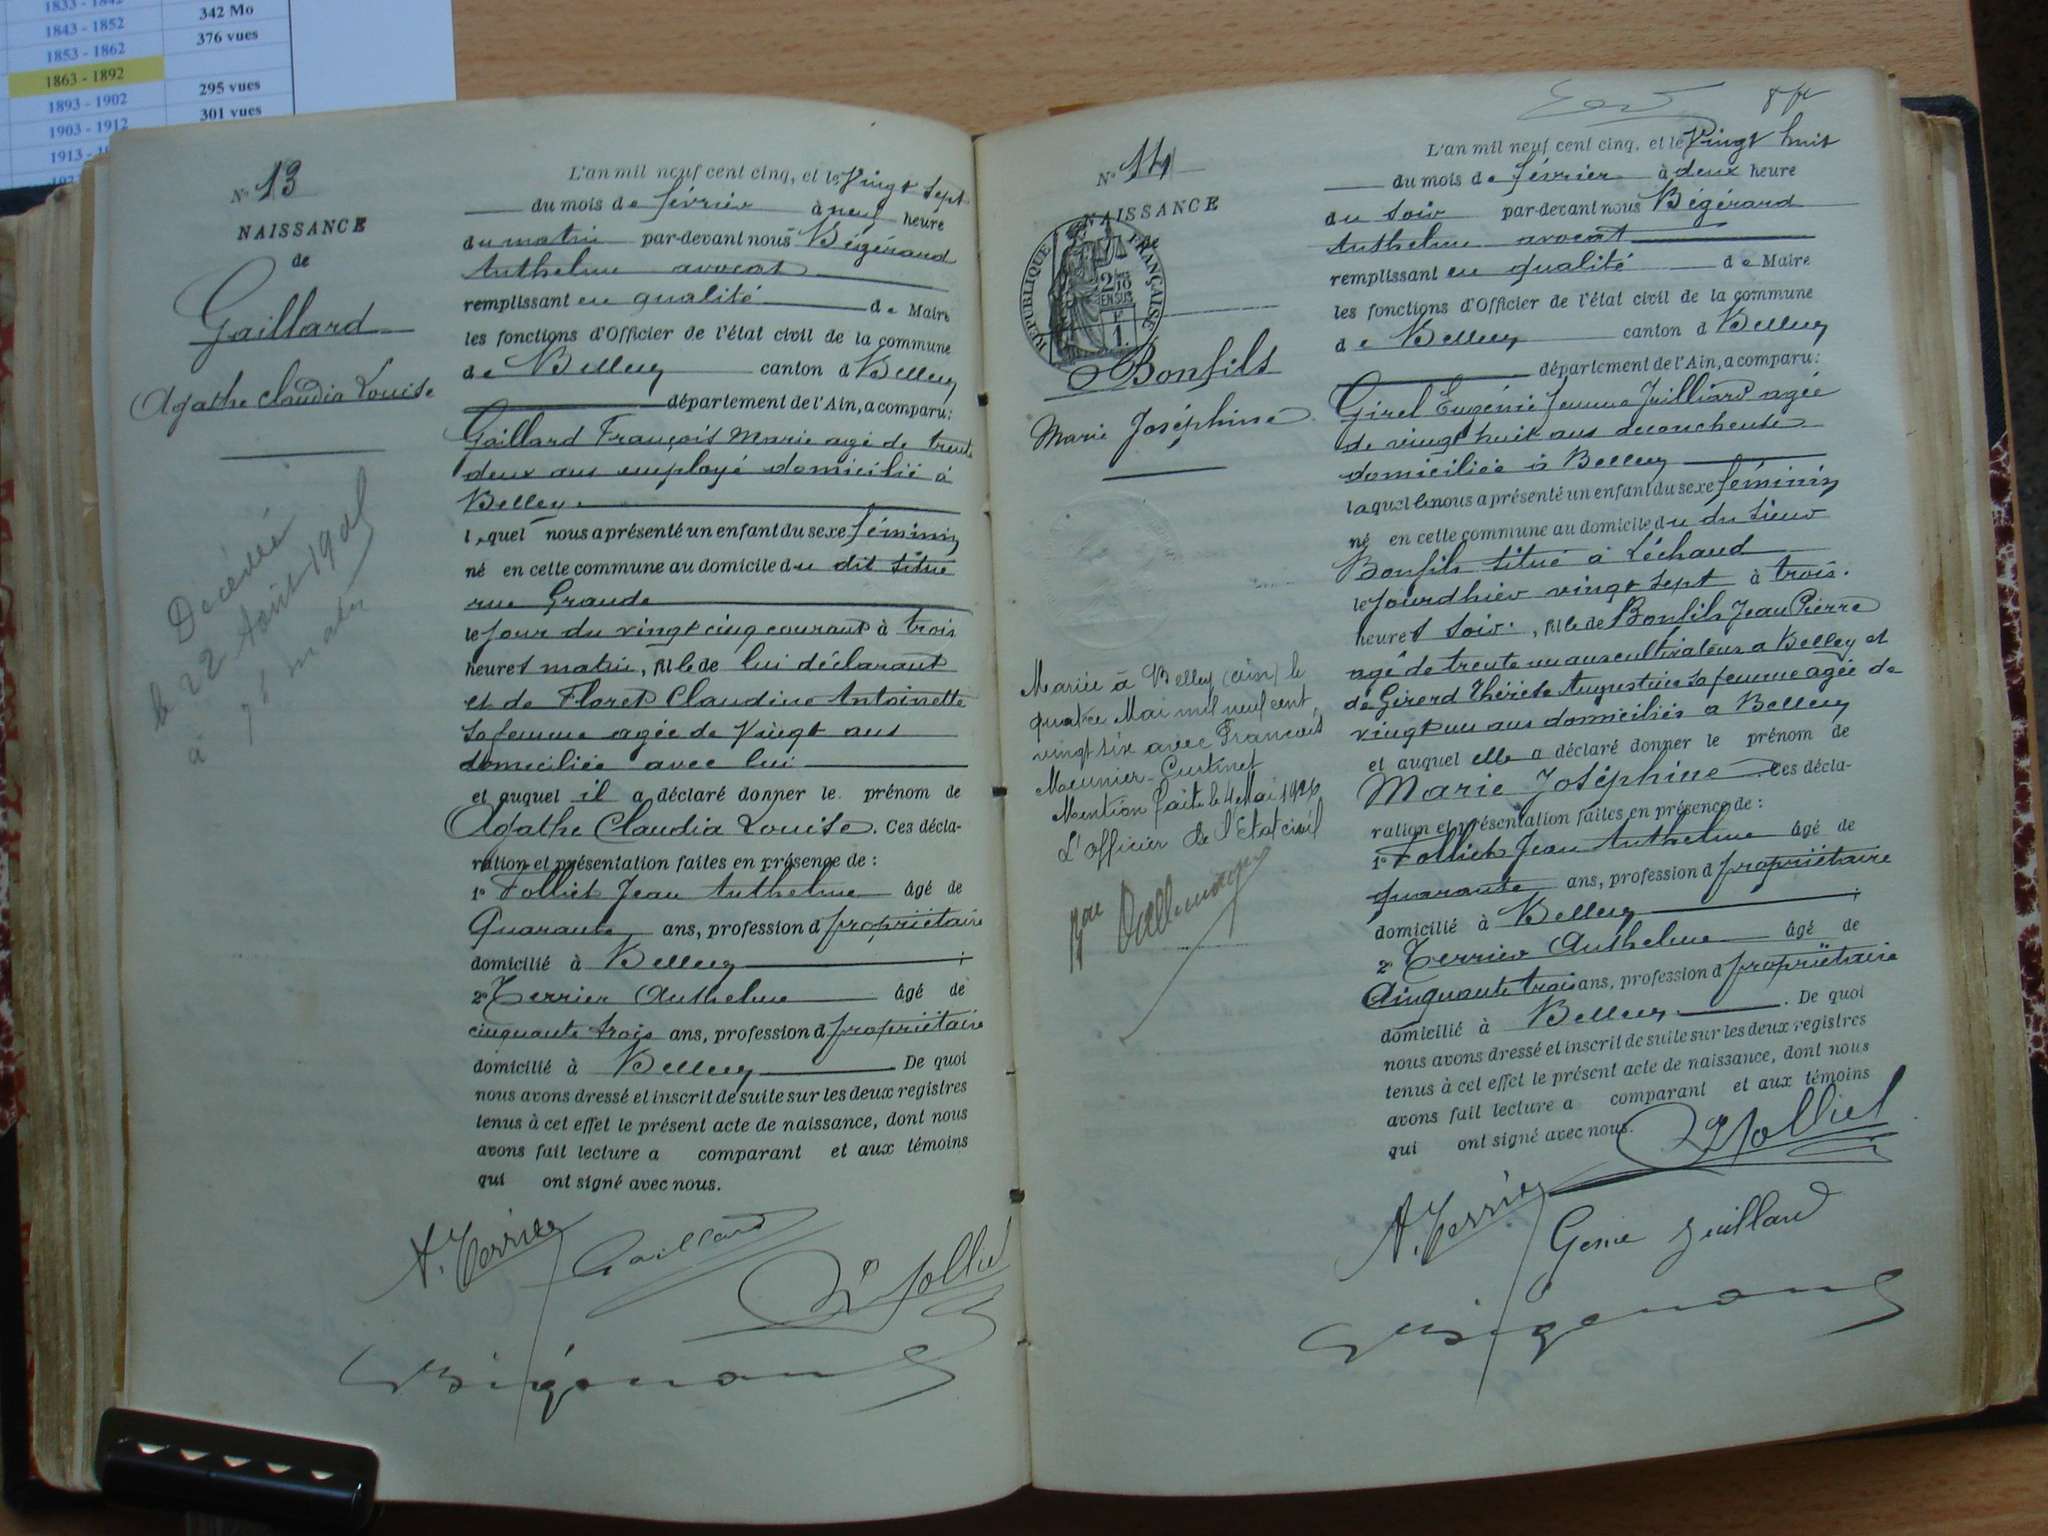 1833 - 1842
342 Mo
1843 - 1852
376 vues
1853 - 1862
1863 - 1892
295 vues
1893 - 1902
301 vues
1903 - 1912
1913 - 1
N° 13
NAISSANCE
de
Gaillard
Agathe Claudia Louise
Decédée
le 22 Août 1905
à 7h matin
L'an mil neuf cent cinq, et le Vingt sept
du mois de février à neuf heure
du matin par-devant nous Bégérand
Anthelme avocat
remplissant en qualité de Maire
les fonctions d'Officier de l'état civil de la commune
de Belley canton d Belley
département de l'Ain, a comparu:
Gaillard François Marie agé de trente
deux ans employé domicilié à
Belley.
lequel nous a présenté un enfant du sexe féminin
né en cette commune au domicile du dit situé
rue Grande
le jour du vingt cinq courant à trois
heures matin, fille de lui déclarant
et de Floret Claudine Antoinette
sa femme agée de Vingt ans
domiciliée avec lui
et auquel il a déclaré donner le prénom de
Agathe Claudia Louise. Ces décla-
ration et présentation faites en présence de :
1° Folliet Jean Anthelme âgé de
Quarante ans, profession d propriétaire
domicilié à Belley ;
2° Terrier Anthelme âgé de
cinquante trois ans, profession d propriétaire
domicilié à Belley De quoi
nous avons dressé et inscrit de suite sur les deux registres
tenus à cet effet le présent acte de naissance, dont nous
avons fait lecture a comparant et aux témoins
qui ont signé avec nous.
A. Terrier Gaillard Folliet
Bégérand
8 f
N° 14
NAISSANCE
de
RÉPUBLIQUE FRANÇAISE
2/10 EN SUS
1 F.
Bonfils
Marie Joséphine
Mariée à Belley (Ain) le
quatre Mai mil neuf cent
vingt six avec François
Meunier-Curtinet
Mention faite le 4 Mai 1926
L'officier de l'Etat civil
L'an mil neuf cent cinq, et le Vingt huit
du mois de février à deux heure
du soir par-devant nous Bégérand
Anthelme avocat
remplissant en qualité de Maire
les fonctions d'Officier de l'état civil de la commune
de Belley canton d Belley
département de l'Ain, a comparu:
Girel Eugénie femme Juilliard agée
de vingt huit ans accoucheuse
domiciliée à Belley
laquelle nous a présenté un enfant du sexe féminin
né en cette commune au domicile du du sieur
Bonfils situé à Léchaud
le jourdhier vingt sept à trois
heures soir, fille de Bonfils Jean Pierre
agé de trente un ans cultivateur a Belley et
de Girerd Thérèse Augustine sa femme agée de
vingt un ans domiciliés a Belley
et auquel elle a déclaré donner le prénom de
Marie Joséphine. Ces décla-
ration et présentation faites en présence de :
1° Folliet Jean Anthelme âgé de
quarante ans, profession d propriétaire
domicilié à Belley ;
2° Terrier Anthelme âgé de
Cinquante trois ans, profession d propriétaire
domicilié à Belley. De quoi
nous avons dressé et inscrit de suite sur les deux registres
tenus à cet effet le présent acte de naissance, dont nous
avons fait lecture a comparant et aux témoins
qui ont signé avec nous. Folliet
A. Terrier Genie Juillard
Bégérand